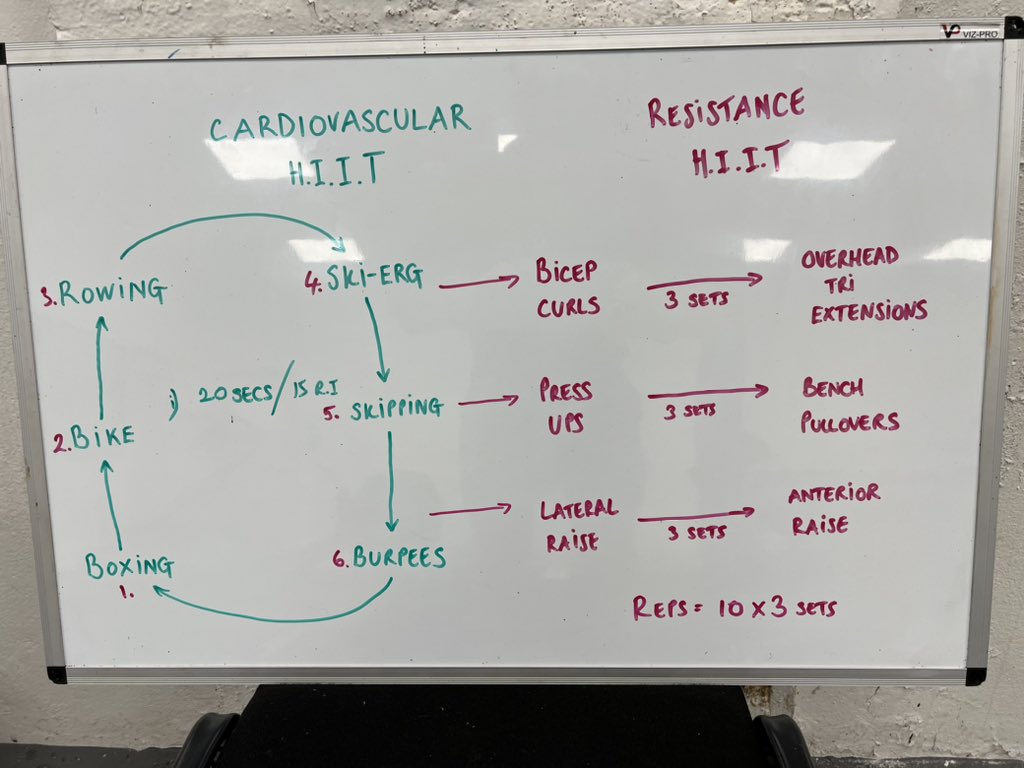 VIZ-PRO
CARDIOVASCULAR
H.I.I.T
3. ROWING
4. SKI-ERG
20 SECS/15 R.I
5. SKIPPING
2. BIKE
6. BURPEES
BOXING
1.
RESISTANCE
H.I.I.T
BICEP
CURLS
3 SETS
OVERHEAD
TRI
EXTENSIONS
PRESS
UPS
3 SETS
BENCH
PULLOVERS
LATERAL
RAISE
3 SETS
ANTERIOR
RAISE
REPS = 10 x 3 SETS